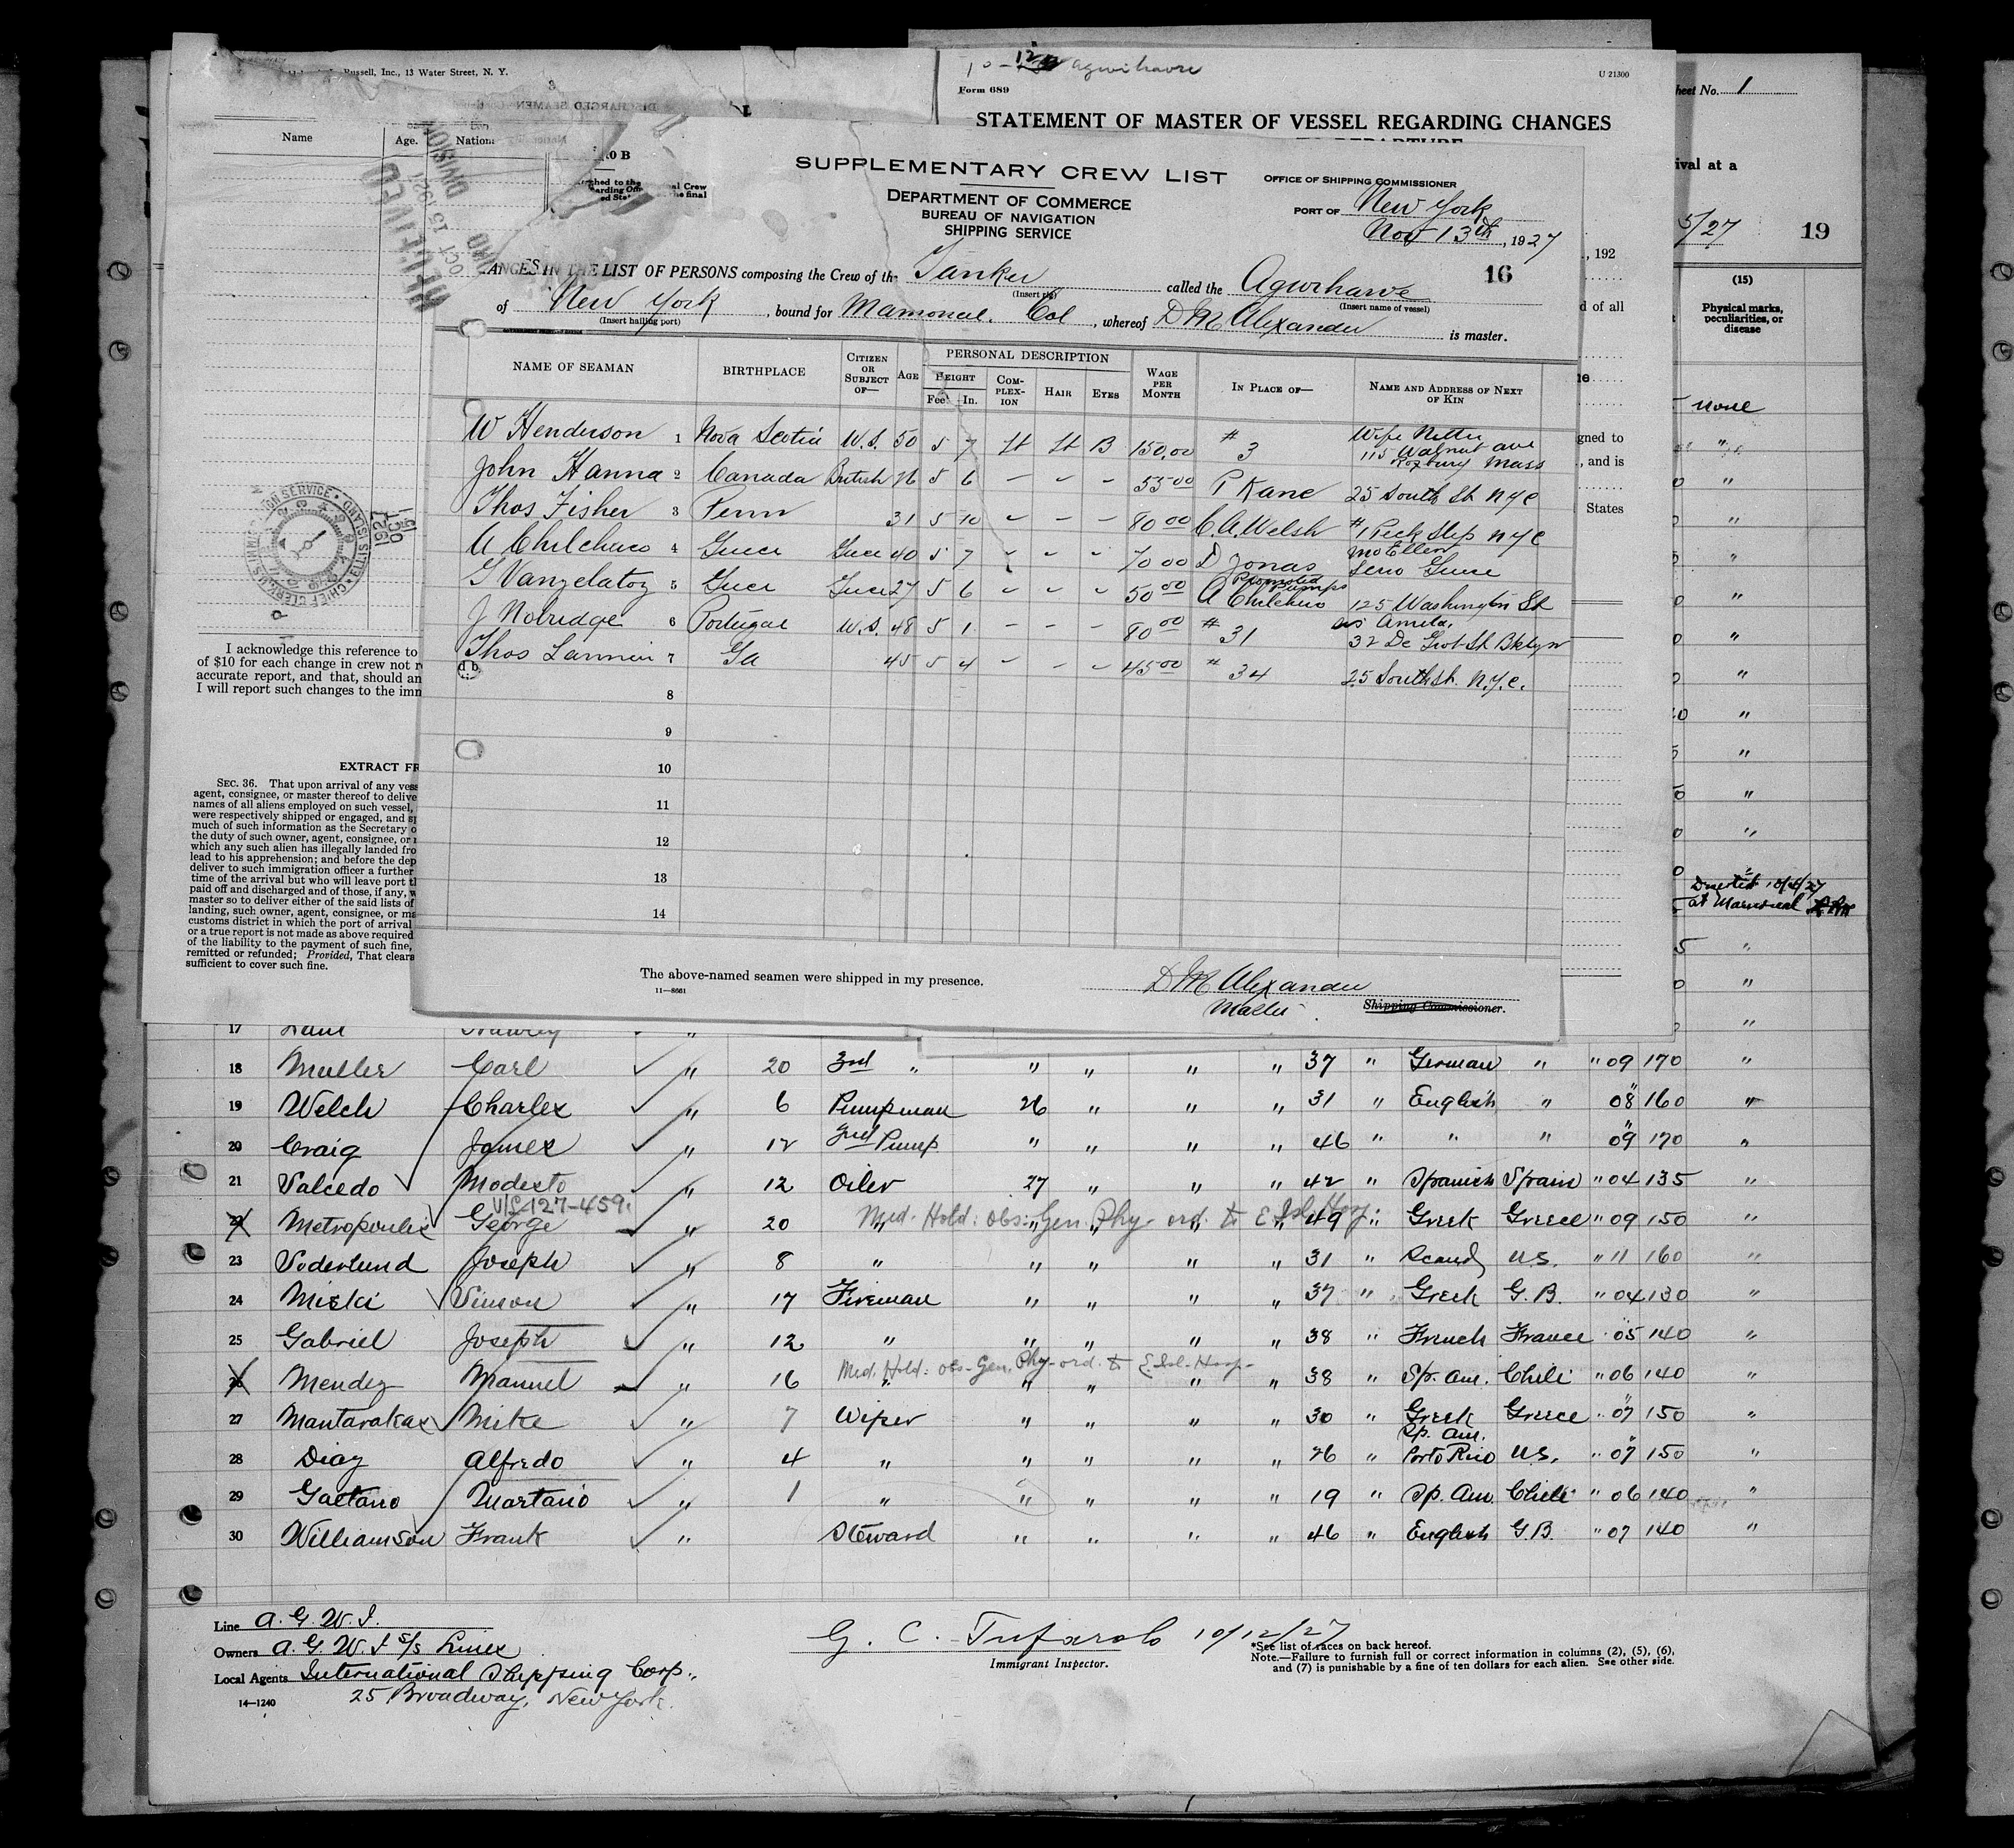 Russell, Inc., 13 Water Street, N. Y.
Name Age.
DISCHARGED SEAMEN
RECEIVED
OCT 15 1927
DIVISION
12 Agwihavre
U 21300
Form 689
STATEMENT OF MASTER OF VESSEL REGARDING CHANGES
Sheet No. 1
ival at a
5/27 19
., 192
d of all
gned to
, and is
States
(15)
Physical marks, peculiarities, or disease
none
SUPPLEMENTARY CREW LIST
DEPARTMENT OF COMMERCE
BUREAU OF NAVIGATION
SHIPPING SERVICE
OFFICE OF SHIPPING COMMISSIONER
PORT OF New York
Nov 13th, 1927
ANGES IN THE LIST OF PERSONS composing the Crew of the Tanker called the Agwihavre 16
(Insert rig) (Insert name of vessel)
of New York, bound for Mamonal, Col, whereof D M Alexander is master.
(Insert hailing port)
NAME OF SEAMAN BIRTHPLACE CITIZEN OR SUBJECT OF— AGE PERSONAL DESCRIPTION WAGE PER MONTH IN PLACE OF— NAME AND ADDRESS OF NEXT OF KIN
HEIGHT COMPLEXION HAIR EYES
Feet In.
W Henderson 1 Nova Scotia U.S. 50 5 7 Lt Lt B 150.00 # 3 Wife Netta 115 Walnut ave Roxbury Mass
John Hanna 2 Canada British 26 5 6 – – – 55 00 P Kane 25 South St NYC
Thos Fisher 3 Penn 31 5 10 – – – 80 00 C. A. Welsh #1 Peck Slip NYC
A Chilchuco 4 Greece Greece 40 5 7 – – – 70 00 D Jonas Mo Ellen Greece
G Vangelatoz 5 Greece Greece 27 5 6 – – – 50 00 A Chilchuco Promoted 125 Washington St
J Nobridge 6 Portugal U.S. 48 5 1 – – – 80 00 # 31 Amelia, 32 De Grot St Bklyn
Thos Lannin 7 Ga 45 5 4 – – – 45 00 # 34 25 South St. N.Y.C.
8
9
10
11
12
13
14
The above-named seamen were shipped in my presence.
11—8661
D M Alexander
Master Shipping Commissioner.
CHIEF CLERK U.S. IMMIGRATION SERVICE ELLIS ISLAND
OCT 15 1927
I acknowledge this reference to
of $10 for each change in crew not r
accurate report, and that, should an
I will report such changes to the imm
EXTRACT FR
SEC. 36. That upon arrival of any vess
agent, consignee, or master thereof to delive
names of all aliens employed on such vessel,
were respectively shipped or engaged, and sp
much of such information as the Secretary o
the duty of such owner, agent, consignee, or m
which any such alien has illegally landed fro
lead to his apprehension; and before the dep
deliver to such immigration officer a further
time of the arrival but who will leave port th
paid off and discharged and of those, if any, w
master so to deliver either of the said lists of
landing, such owner, agent, consignee, or ma
customs district in which the port of arrival
or a true report is not made as above required
of the liability to the payment of such fine,
remitted or refunded; Provided, That clears
sufficient to cover such fine.
Deserted 10/4/27
at Mamonal
17
18 Muller Carl ✓ " 20 3rd " " " " " 37 " German " " 09 170 "
19 Welch Charles ✓ " 6 Pumpman 26 " " " 31 " English " " 08 160 "
20 Craig James ✓ " 12 2nd Pump " " " " 46 " " " " 09 170 "
21 Salcedo Modesto ✓ " 12 Oiler 27 " " " 42 " Spanish Spain " 04 135 "
U/S 127-459.
22 Metropoulis George " 20 " " " " " 49 " Greek Greece " 09 150 "
Med. Hold: obs: Gen. Phy- ord. to E. Isl. Hosp.
23 Soderlund Joseph ✓ " 8 " " " " " 31 " Scand U.S. " 11 160 "
24 Miski Simon ✓ " 17 Fireman " " " " 37 " Greek G. B. " 04 130 "
25 Gabriel Joseph ✓ " 12 " " " " " 38 " French France " 05 140 "
Med. Hold: obs- Gen. Phy- ord. to E. Isl- Hosp-
26 Mendez Manuel " 16 " " " " " 38 " Sp. Am. Chili " 06 140 "
27 Mantarakas Mike ✓ " 7 Wiper " " " " 30 " Greek Greece " 07 150 "
28 Diaz Alfredo ✓ " 4 " " " " " 26 " Sp. Am. Porto Rico U.S. " 07 150 "
29 Gaetano Quartano ✓ " 1 " " " " " 19 " Sp. Am Chili " 06 140 "
30 Williamson Frank ✓ " Steward " " " " 46 " English G.B. " 07 140 "
Line A. G. W. I.
Owners A. G. W. I S/S Lines
Local Agents International Shipping Corp.,
25 Broadway, New York.
14—1240
G. C. Tufarolo 10/12/27
Immigrant Inspector.
*See list of races on back hereof.
Note.—Failure to furnish full or correct information in columns (2), (5), (6),
and (7) is punishable by a fine of ten dollars for each alien. See other side.